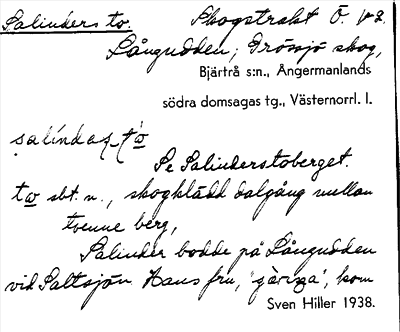 Salinders to.
Skogstrakt Ö. V2.
Långudden, Drössjö skog,
Bjärtrå s:n., Ångermanlands
södra domsagas tg., Västernorrl. l.
Se Salinderstoberget.
sbt. n., skogklädd dalgång mellan
tvenne berg,
Salinder bodde på Långudden
vid Saltsjön. Hans fru, kom
Sven Hiller 1938.